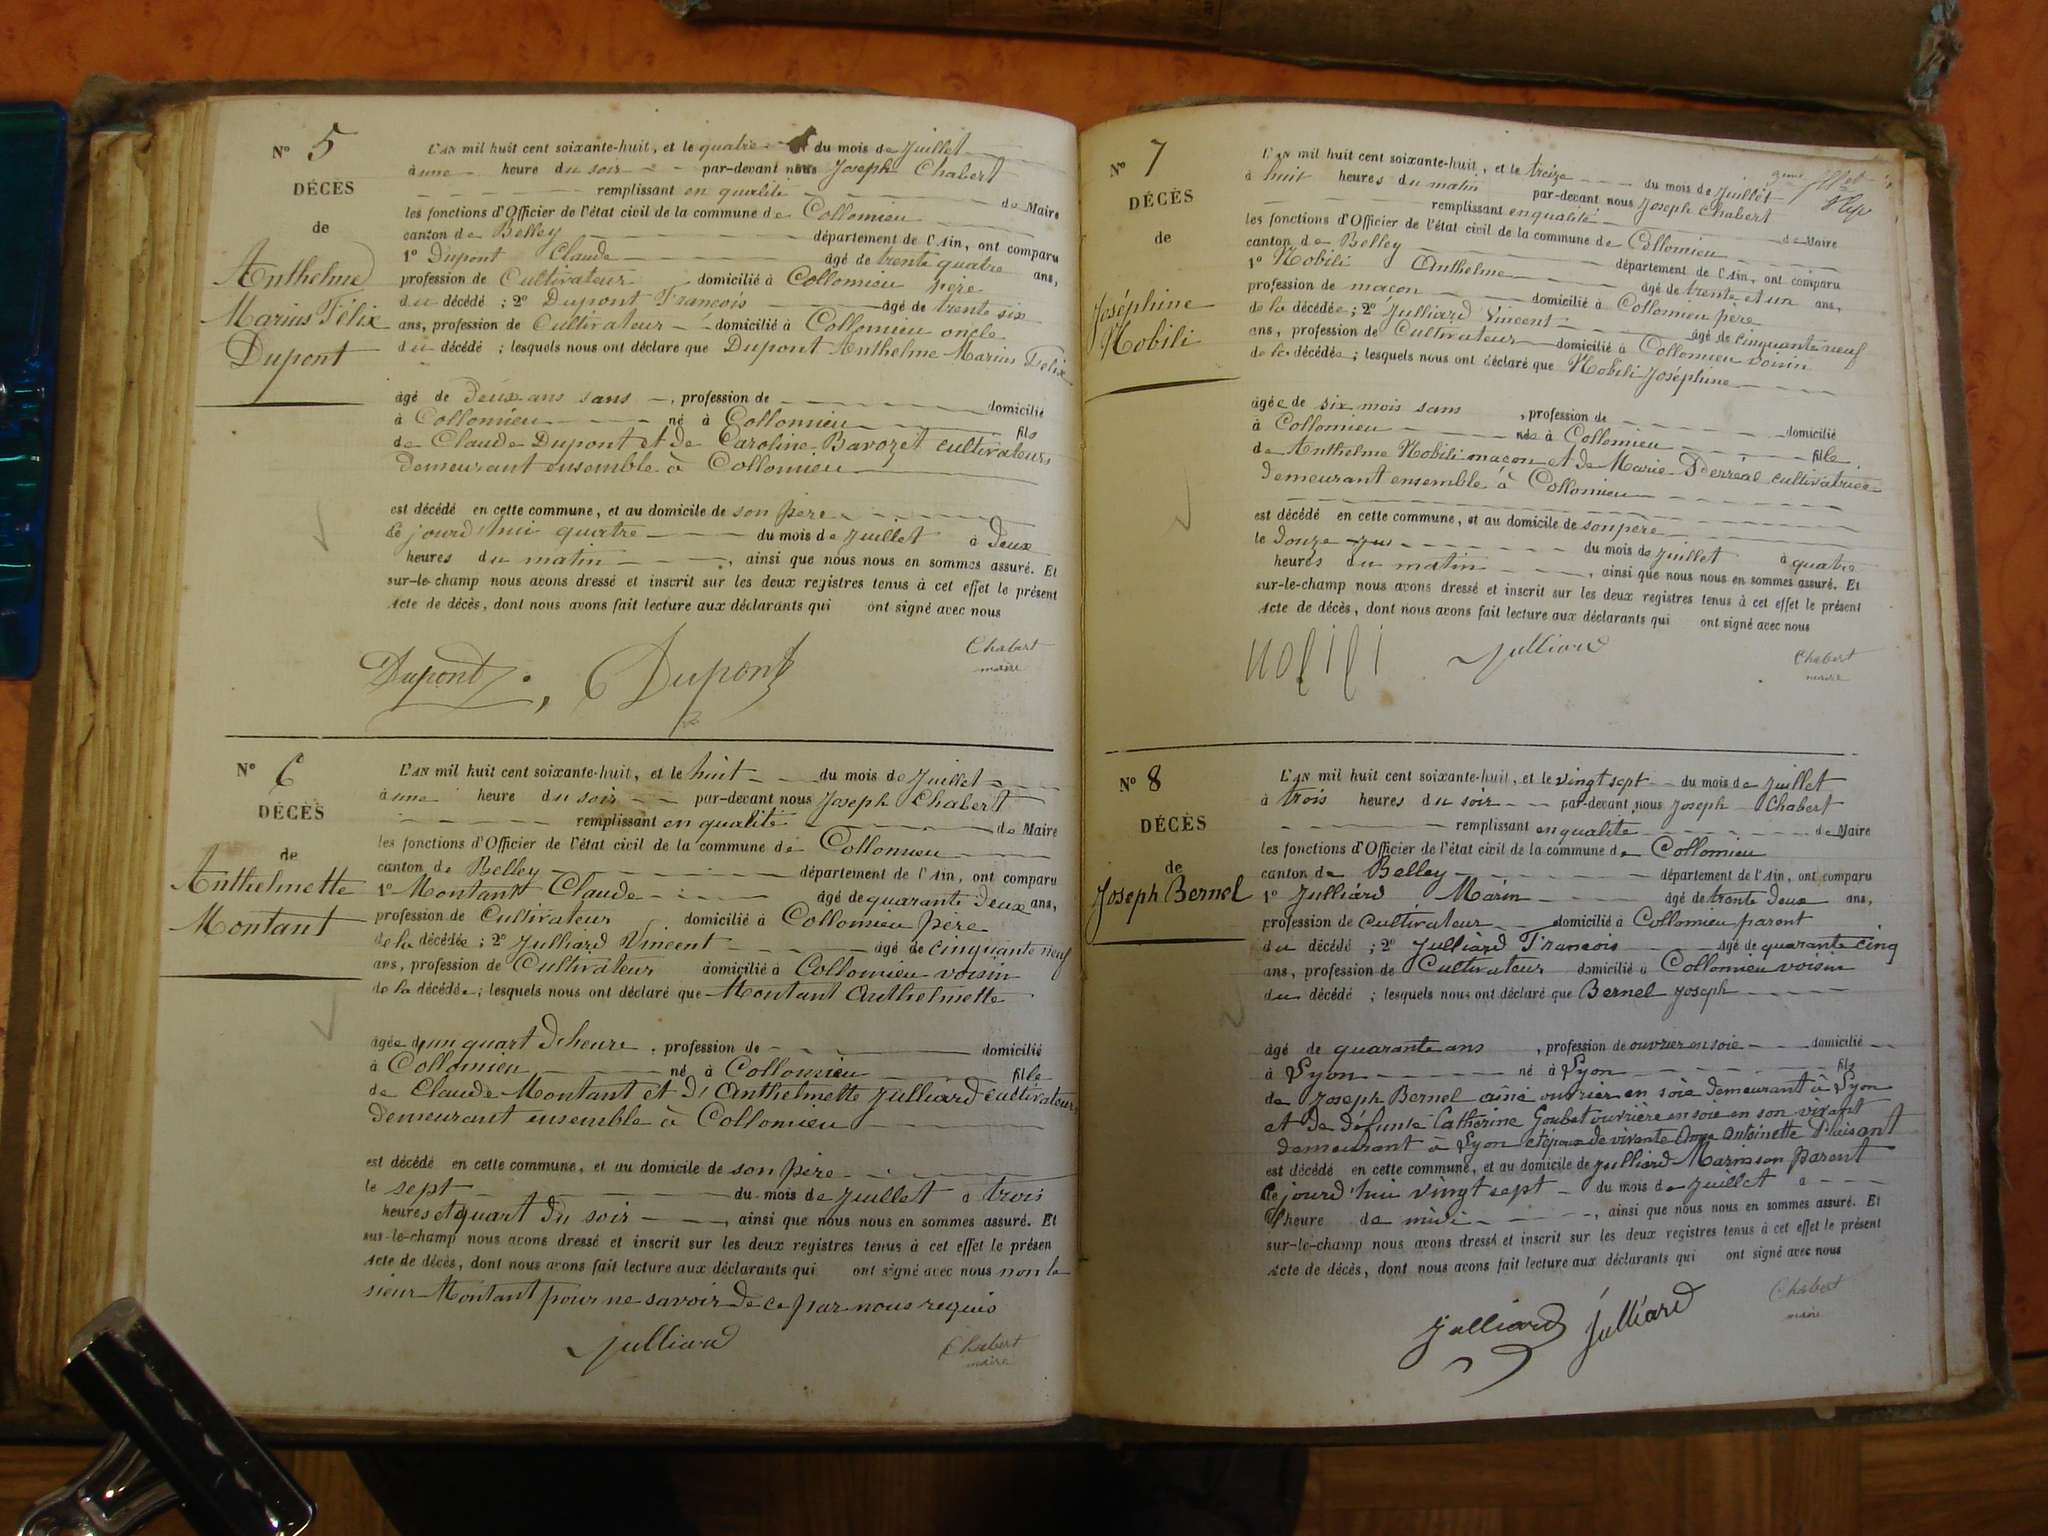 N° 5
DÉCÈS
de
Anthelme
Marius Félix
Dupont
L'AN mil huit cent soixante-huit, et le quatre du mois de Juillet
à une heure du soir par-devant nous Joseph Chabert
remplissant en qualité de Maire
les fonctions d'Officier de l'état civil de la commune de Collomieu
canton de Belley département de l'Ain, ont comparu
1° Dupont Claude âgé de trente quatre ans,
profession de Cultivateur domicilié à Collomieu père
du décédé ; 2° Dupont François âgé de trente six
ans, profession de Cultivateur domicilié à Collomieu oncle
du décédé ; lesquels nous ont déclaré que Dupont Anthelme Marius Félix
âgé de deux ans sans , profession de domicilié
à Collomieu né à Collomieu fils
de Claude Dupont et de Caroline Bavozet cultivateurs
demeurant ensemble à Collomieu
est décédé en cette commune, et au domicile de son père
le jourd'hui quatre du mois de Juillet à deux
heures du matin , ainsi que nous nous en sommes assuré. Et
sur-le-champ nous avons dressé et inscrit sur les deux registres tenus à cet effet le présent
Acte de décès, dont nous avons fait lecture aux déclarants qui ont signé avec nous
Dupont Dupont Chabert
maire
N° 6
DÉCÈS
de
Anthelmette
Montant
L'AN mil huit cent soixante-huit, et le huit du mois de Juillet
à une heure du soir par-devant nous Joseph Chabert
remplissant en qualité de Maire
les fonctions d'Officier de l'état civil de la commune de Collomieu
canton de Belley département de l'Ain, ont comparu
1° Montant Claude âgé de quarante deux ans,
profession de Cultivateur domicilié à Collomieu père
de la décédée ; 2° Julliard Vincent âgé de cinquante neuf
ans, profession de Cultivateur domicilié à Collomieu voisin
de la décédée ; lesquels nous ont déclaré que Montant Anthelmette
âgée d'un quart d'heure , profession de domicilié
à Collomieu né à Collomieu fille
de Claude Montant et d'Anthelmette Julliard cultivateurs
demeurant ensemble à Collomieu
est décédé en cette commune, et au domicile de son père
le sept du mois de Juillet à trois
heures et quart du soir , ainsi que nous nous en sommes assuré. Et
sur-le-champ nous avons dressé et inscrit sur les deux registres tenus à cet effet le présen
Acte de décès, dont nous avons fait lecture aux déclarants qui ont signé avec nous non le
sieur Montant pour ne savoir de ce par nous requis
Julliard Chabert
maire
N° 7
DÉCÈS
de
Joséphine
Nobili
L'AN mil huit cent soixante-huit, et le treize du mois de Juillet
à huit heures du matin par-devant nous Joseph Chabert
remplissant en qualité de Maire
les fonctions d'Officier de l'état civil de la commune de Collomieu
canton de Belley département de l'Ain, ont comparu
1° Nobili Anthelme âgé de trente et un ans,
profession de maçon domicilié à Collomieu père
de la décédée ; 2° Julliard Vincent âgé de cinquante neuf
ans, profession de Cultivateur domicilié à Collomieu voisin
de la décédée ; lesquels nous ont déclaré que Nobili Joséphine
âgée de six mois sans , profession de domicilié
à Collomieu née à Collomieu fille
de Anthelme Nobili maçon et de Marie cultivatrice
demeurant ensemble à Collomieu
est décédé en cette commune, et au domicile de son père
le douze du mois de Juillet à quatre
heures du matin , ainsi que nous nous en sommes assuré. Et
sur-le-champ nous avons dressé et inscrit sur les deux registres tenus à cet effet le présent
Acte de décès, dont nous avons fait lecture aux déclarants qui ont signé avec nous
nobili Julliard Chabert
maire
N° 8
DÉCÈS
de
Joseph Bernel
L'AN mil huit cent soixante-huit, et le vingt sept du mois de Juillet
à trois heures du soir par-devant nous Joseph Chabert
remplissant en qualité de Maire
les fonctions d'Officier de l'état civil de la commune de Collomieu
canton de Belley département de l'Ain, ont comparu
1° Julliard Marin âgé de trente deux ans,
profession de Cultivateur domicilié à Collomieu parent
du décédé ; 2° Julliard François âgé de quarante cinq
ans, profession de Cultivateur domicilié à Collomieu voisin
du décédé ; lesquels nous ont déclaré que Bernel Joseph
âgé de quarante ans , profession de ouvrier en soie domicilié
à Lyon né à Lyon fils
de Joseph Bernel ainé ouvrier en soie demeurant à Lyon
et de défunte Catherine Goubet ouvrière en soie en son vivant
demeurant à Lyon et époux de vivante Anne Antoinette Plaisant
est décédé en cette commune, et au domicile de Julliard Marin son parent
le jourd'hui vingt sept du mois de Juillet à
l'heure de midi , ainsi que nous nous en sommes assuré. Et
sur-le-champ nous avons dressé et inscrit sur les deux registres tenus à cet effet le présent
Acte de décès, dont nous avons fait lecture aux déclarants qui ont signé avec nous
Julliard Julliard Chabert
maire